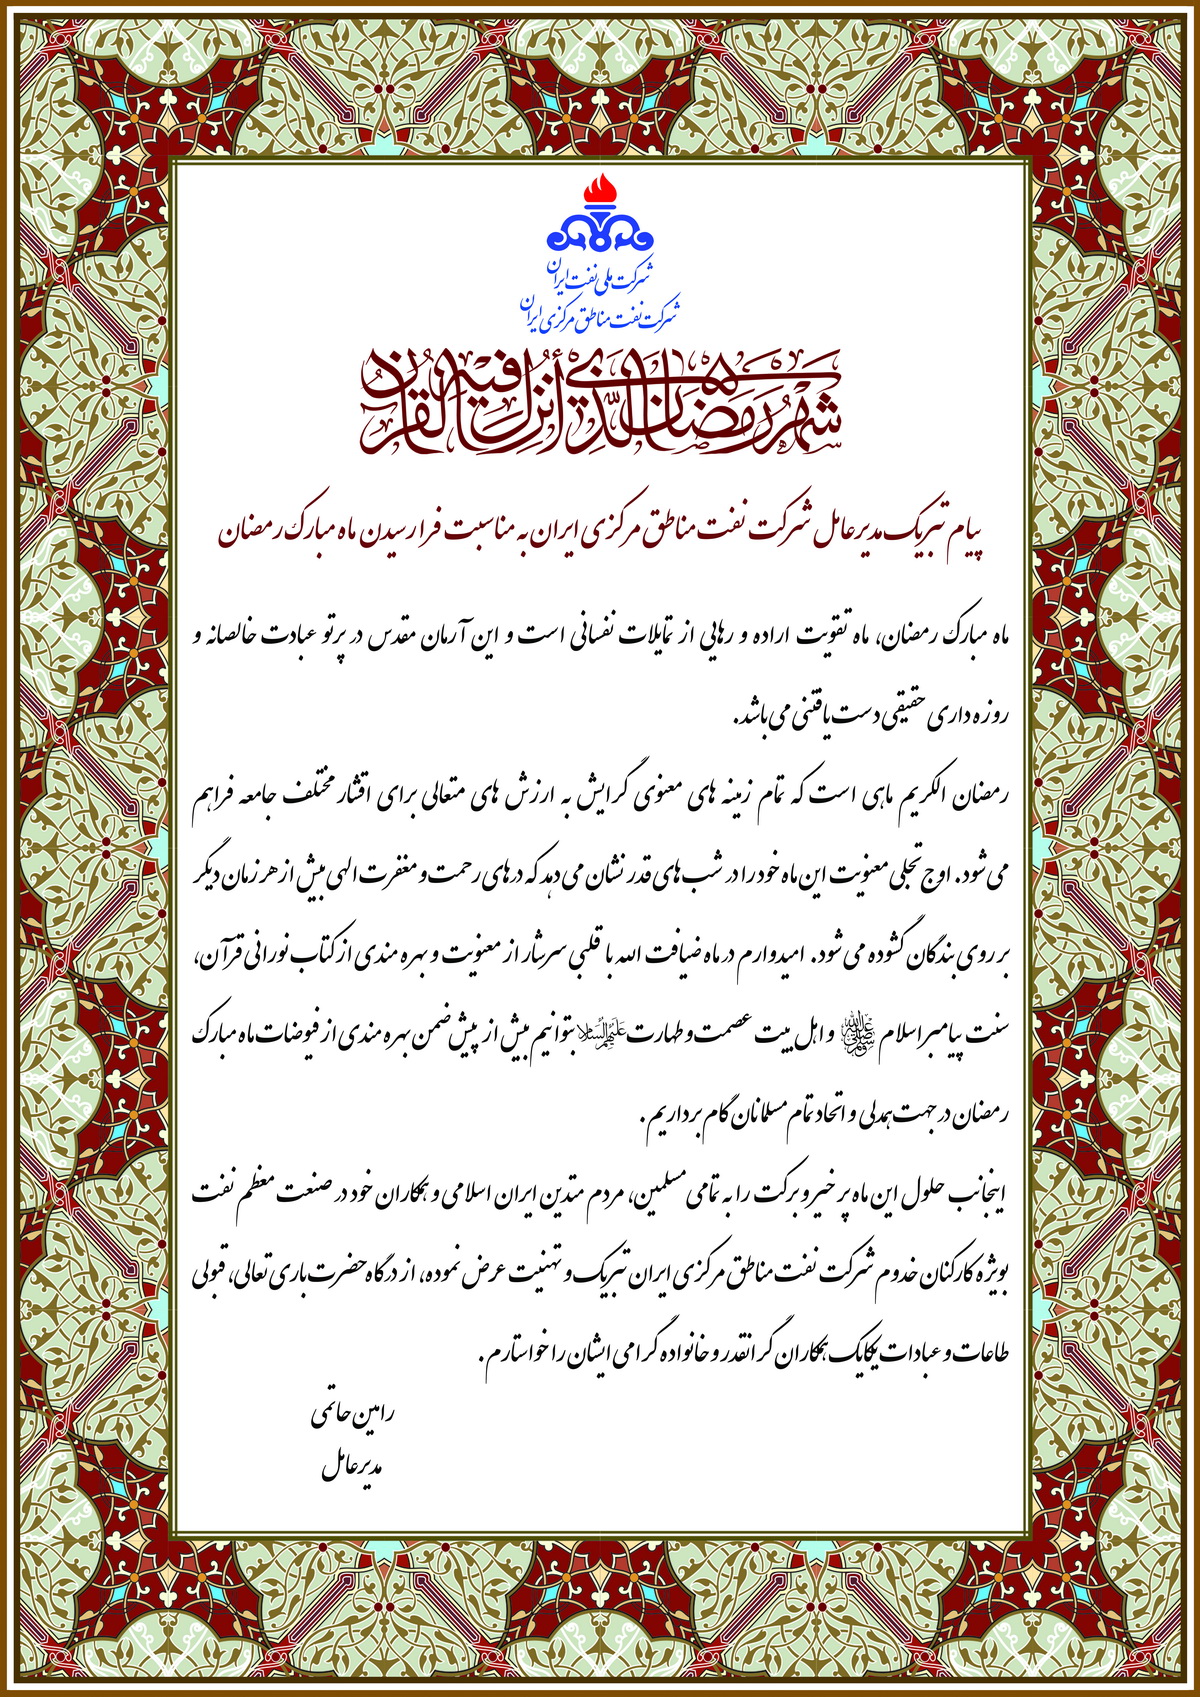 شرکت ملی نفت ایران
شرکت نفت مناطق مرکزی ایران
شهر رمضان الذی أنزل فیه القرآن
پیام تبریک مدیرعامل شرکت نفت مناطق مرکزی ایران به مناسبت فرارسیدن ماه مبارک رمضان
ماه مبارک رمضان، ماه تقویت اراده و رهایی از تمایلات نفسانی است و این آرمان مقدس در پرتو عبادت خالصانه و
روزه داری حقیقی دست یافتنی می باشد.
رمضان الکریم ماهی است که تمام زمینه های معنوی گرایش به ارزش های متعالی برای اقشار مختلف جامعه فراهم
می شود. اوج تجلی معنویت این ماه خود را در شب های قدر نشان می دهد که درهای رحمت و مغفرت الهی بیش از هر زمان دیگر
بر روی بندگان گشوده می شود. امیدوارم در ماه ضیافت الله با قلبی سرشار از معنویت و بهره مندی از کتاب نورانی قرآن،
سنت پیامبر اسلام ﷺ و اهل بیت عصمت و طهارت علیهم السلام بتوانیم بیش از پیش ضمن بهره مندی از فیوضات ماه مبارک
رمضان در جهت همدلی و اتحاد تمام مسلمانان گام برداریم.
اینجانب حلول این ماه پر خیر و برکت را به تمامی مسلمین، مردم متدین ایران اسلامی و همکاران خود در صنعت معظم نفت
بویژه کارکنان خدوم شرکت نفت مناطق مرکزی ایران تبریک و تهنیت عرض نموده، از درگاه حضرت باری تعالی، قبولی
طاعات و عبادات یکایک همکاران گرانقدر و خانواده گرامی ایشان را خواستارم.
رامین حاتمی
مدیرعامل